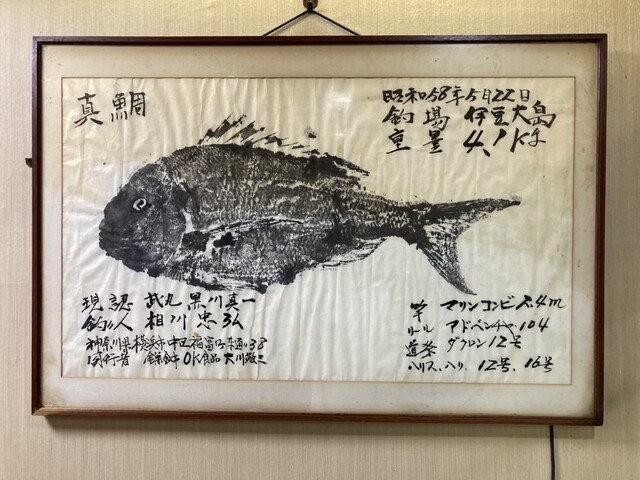 真鯛
昭和58年5月22日
釣場 伊豆大島
重量 4.1Kg
現認 武丸 黒川真一
釣人 相川忠弘
神奈川県横浜市中区福富町 38
同行者 OK食品 大川
竿 マリンコンビ 4m
リール アドベンチャー 104
道糸 ダクロン12号
ハリス、ハリ、12号、16号